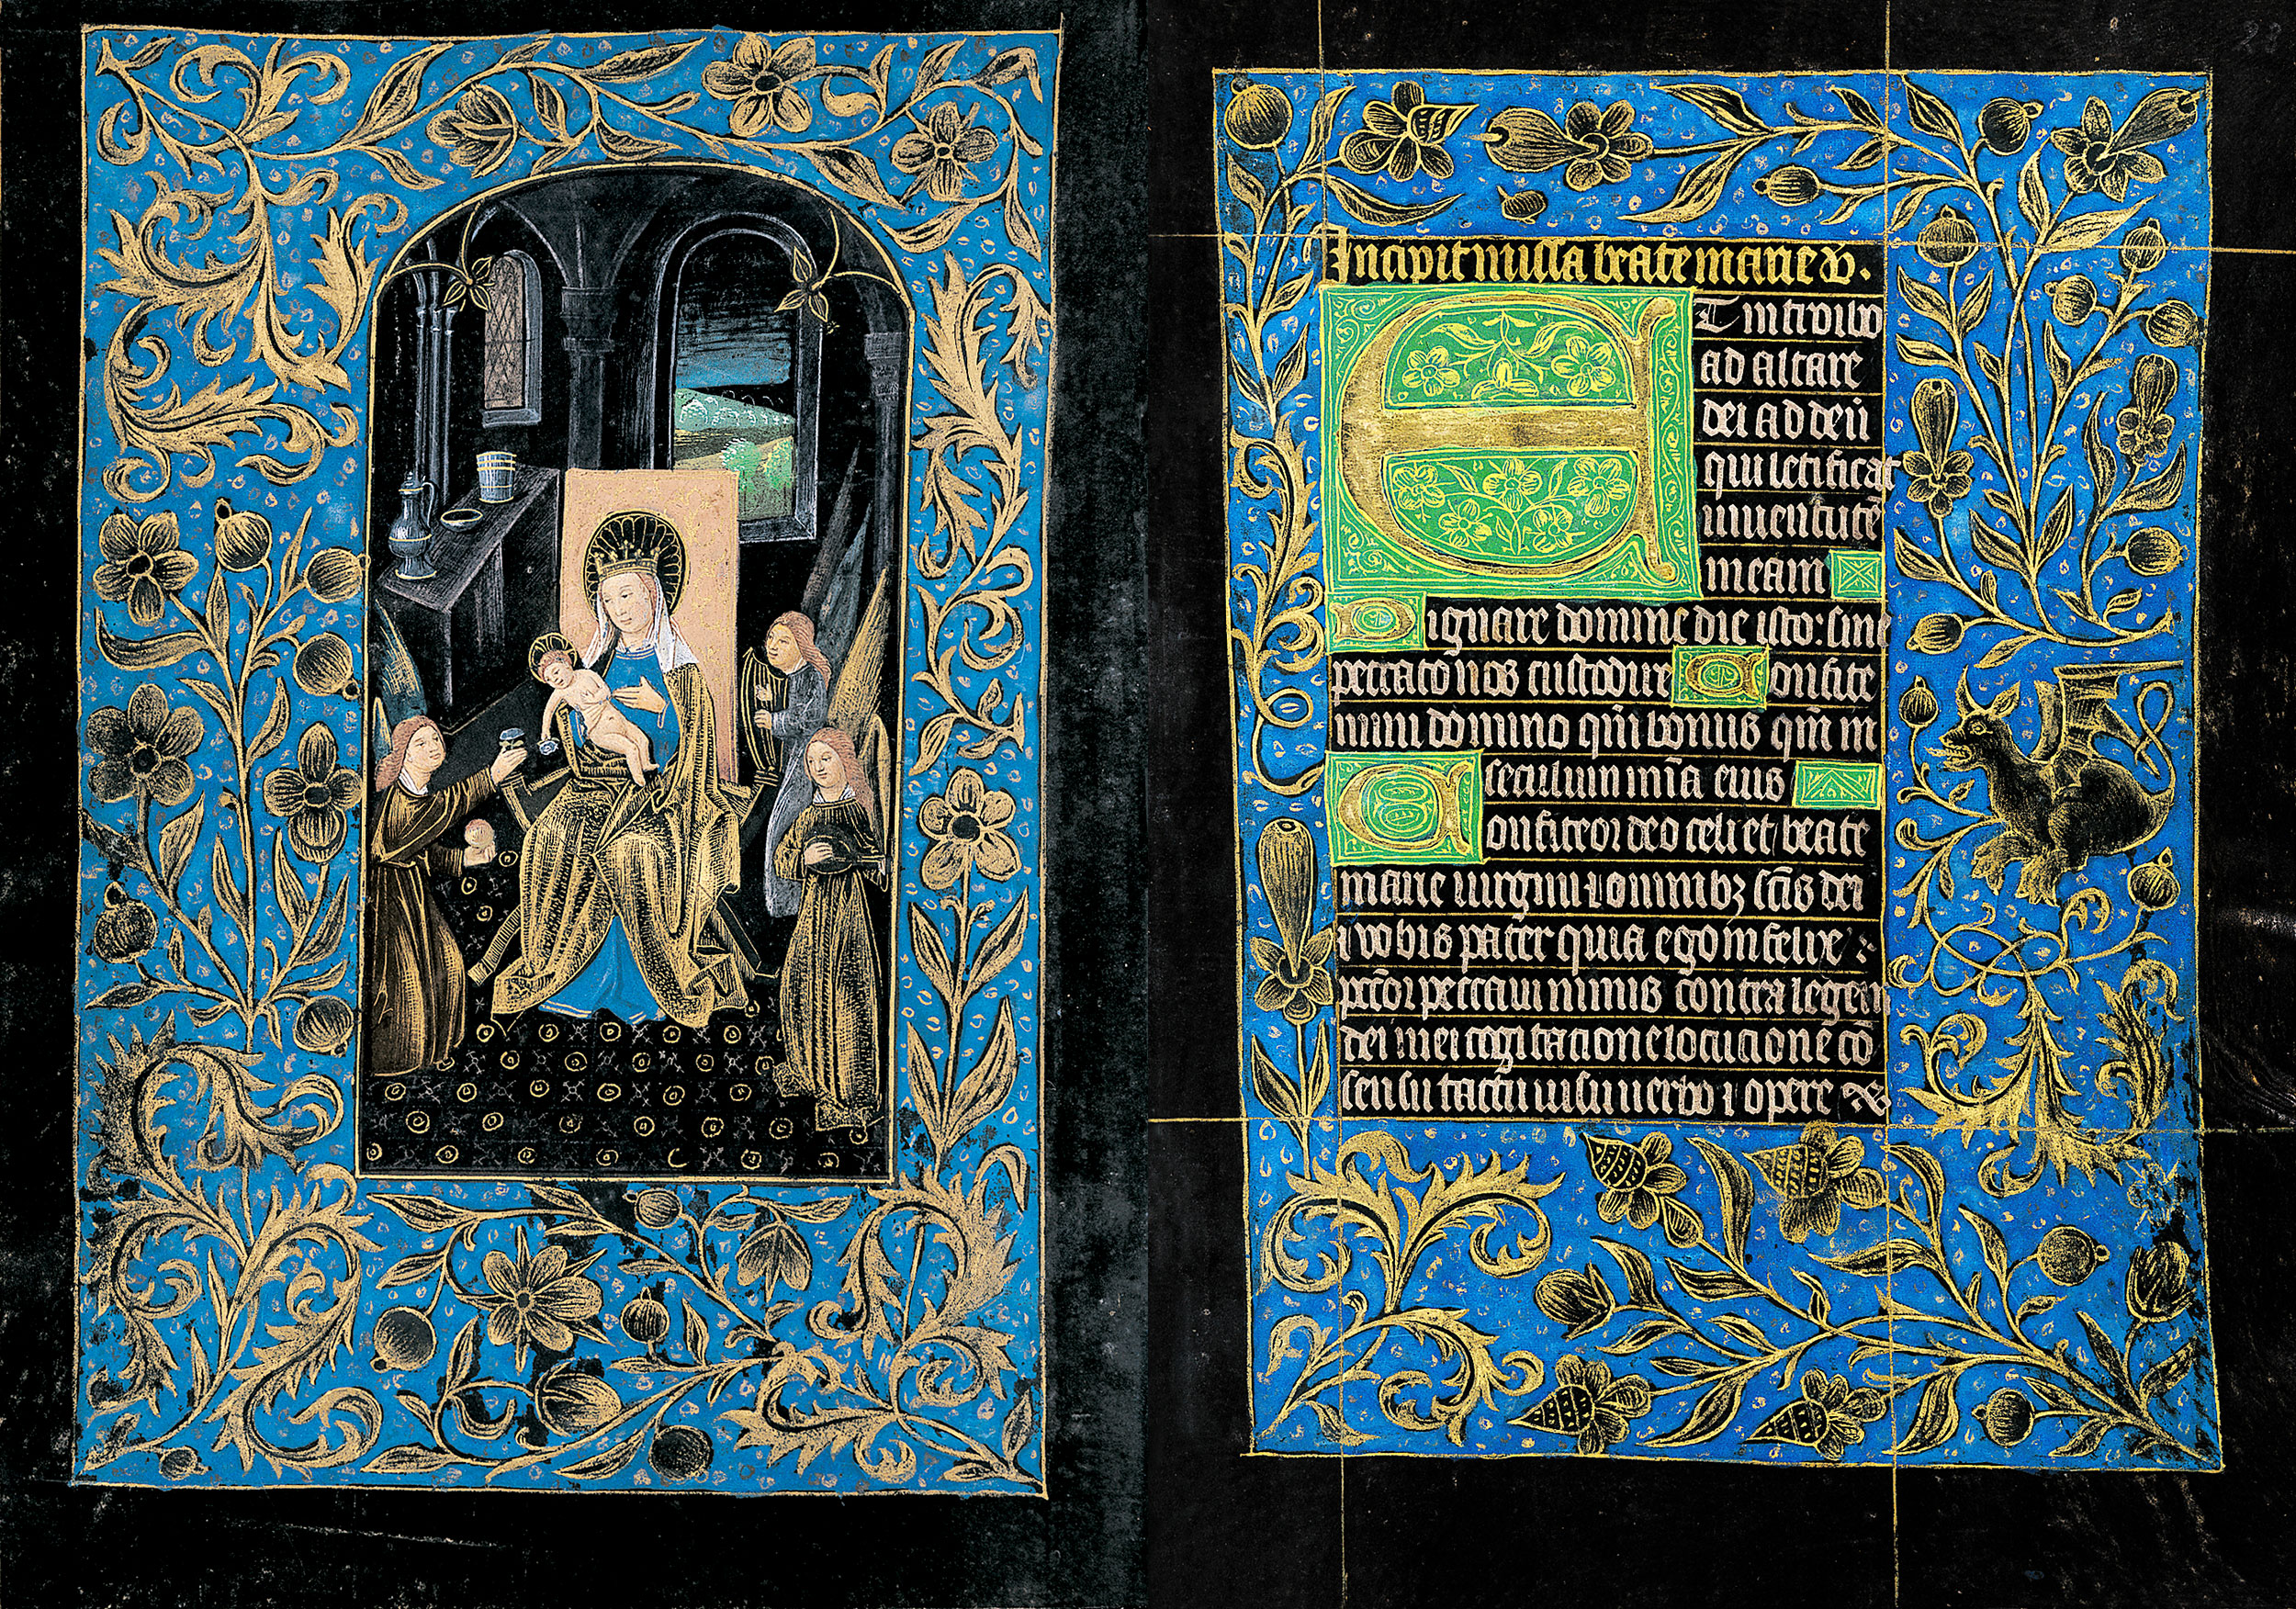 Incipit missa beate marie v.
Et introibo
ad altare
dei ad deū
qui letificat
iuuentutē
meam
Dignare domine die isto: sine
peccato nos custodire Confite
mini domino qm̄ bonus qm̄ in
seculum mīa eius
Confiteor deo celi et beate
marie uirgini ⁊ omnibꝫ scīs dei
⁊ vobis pater quia ego infelix
pctōr peccaui nimis contra legem
dei mei cogitatione locutione cō
sensu tactu uisu uerbo ⁊ opere
28